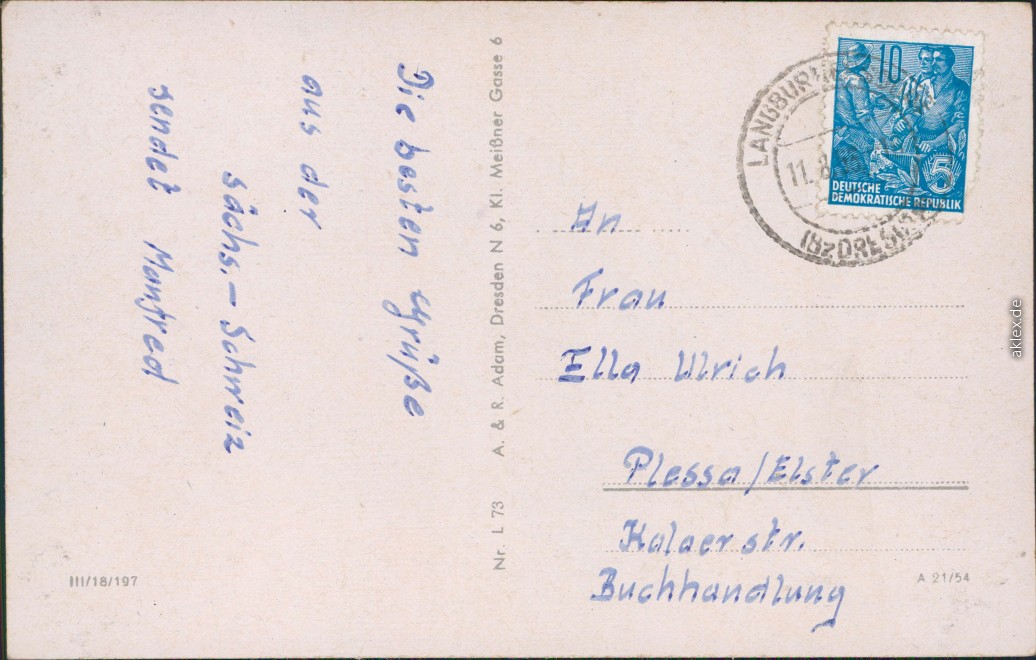 Die besten Grüße
aus der
sächs.-Schweiz
sendet Manfred
Nr. L 73 A. & R. Adam, Dresden N 6, Kl. Meißner Gasse 6
10
5
DEUTSCHE
DEMOKRATISCHE REPUBLIK
11.8.
(Bz DRESD
An
Frau
Ella Ulrich
Plessa/Elster
Kalaer str.
Buchhandlung
III/18/197
A 21/54
aklex.de